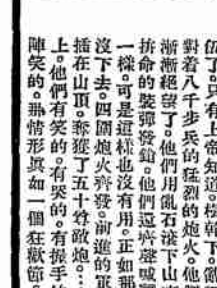 伍了只有上帝知道。
對着八千步兵的猛烈的炮火。他
漸漸絕望了。他們用亂石滾下山
拚命的裝彈發鎗。他們還齊聲喊
一樣。可是這樣也沒有用。正如那
沒下去。四圍炮火齊發。前進的軍
插在山頂。奪獲了五十尊敵炮。⋯
上。他們有笑的。有哭的。有握手的
陣笑的。那情形眞如一個狂歡節。